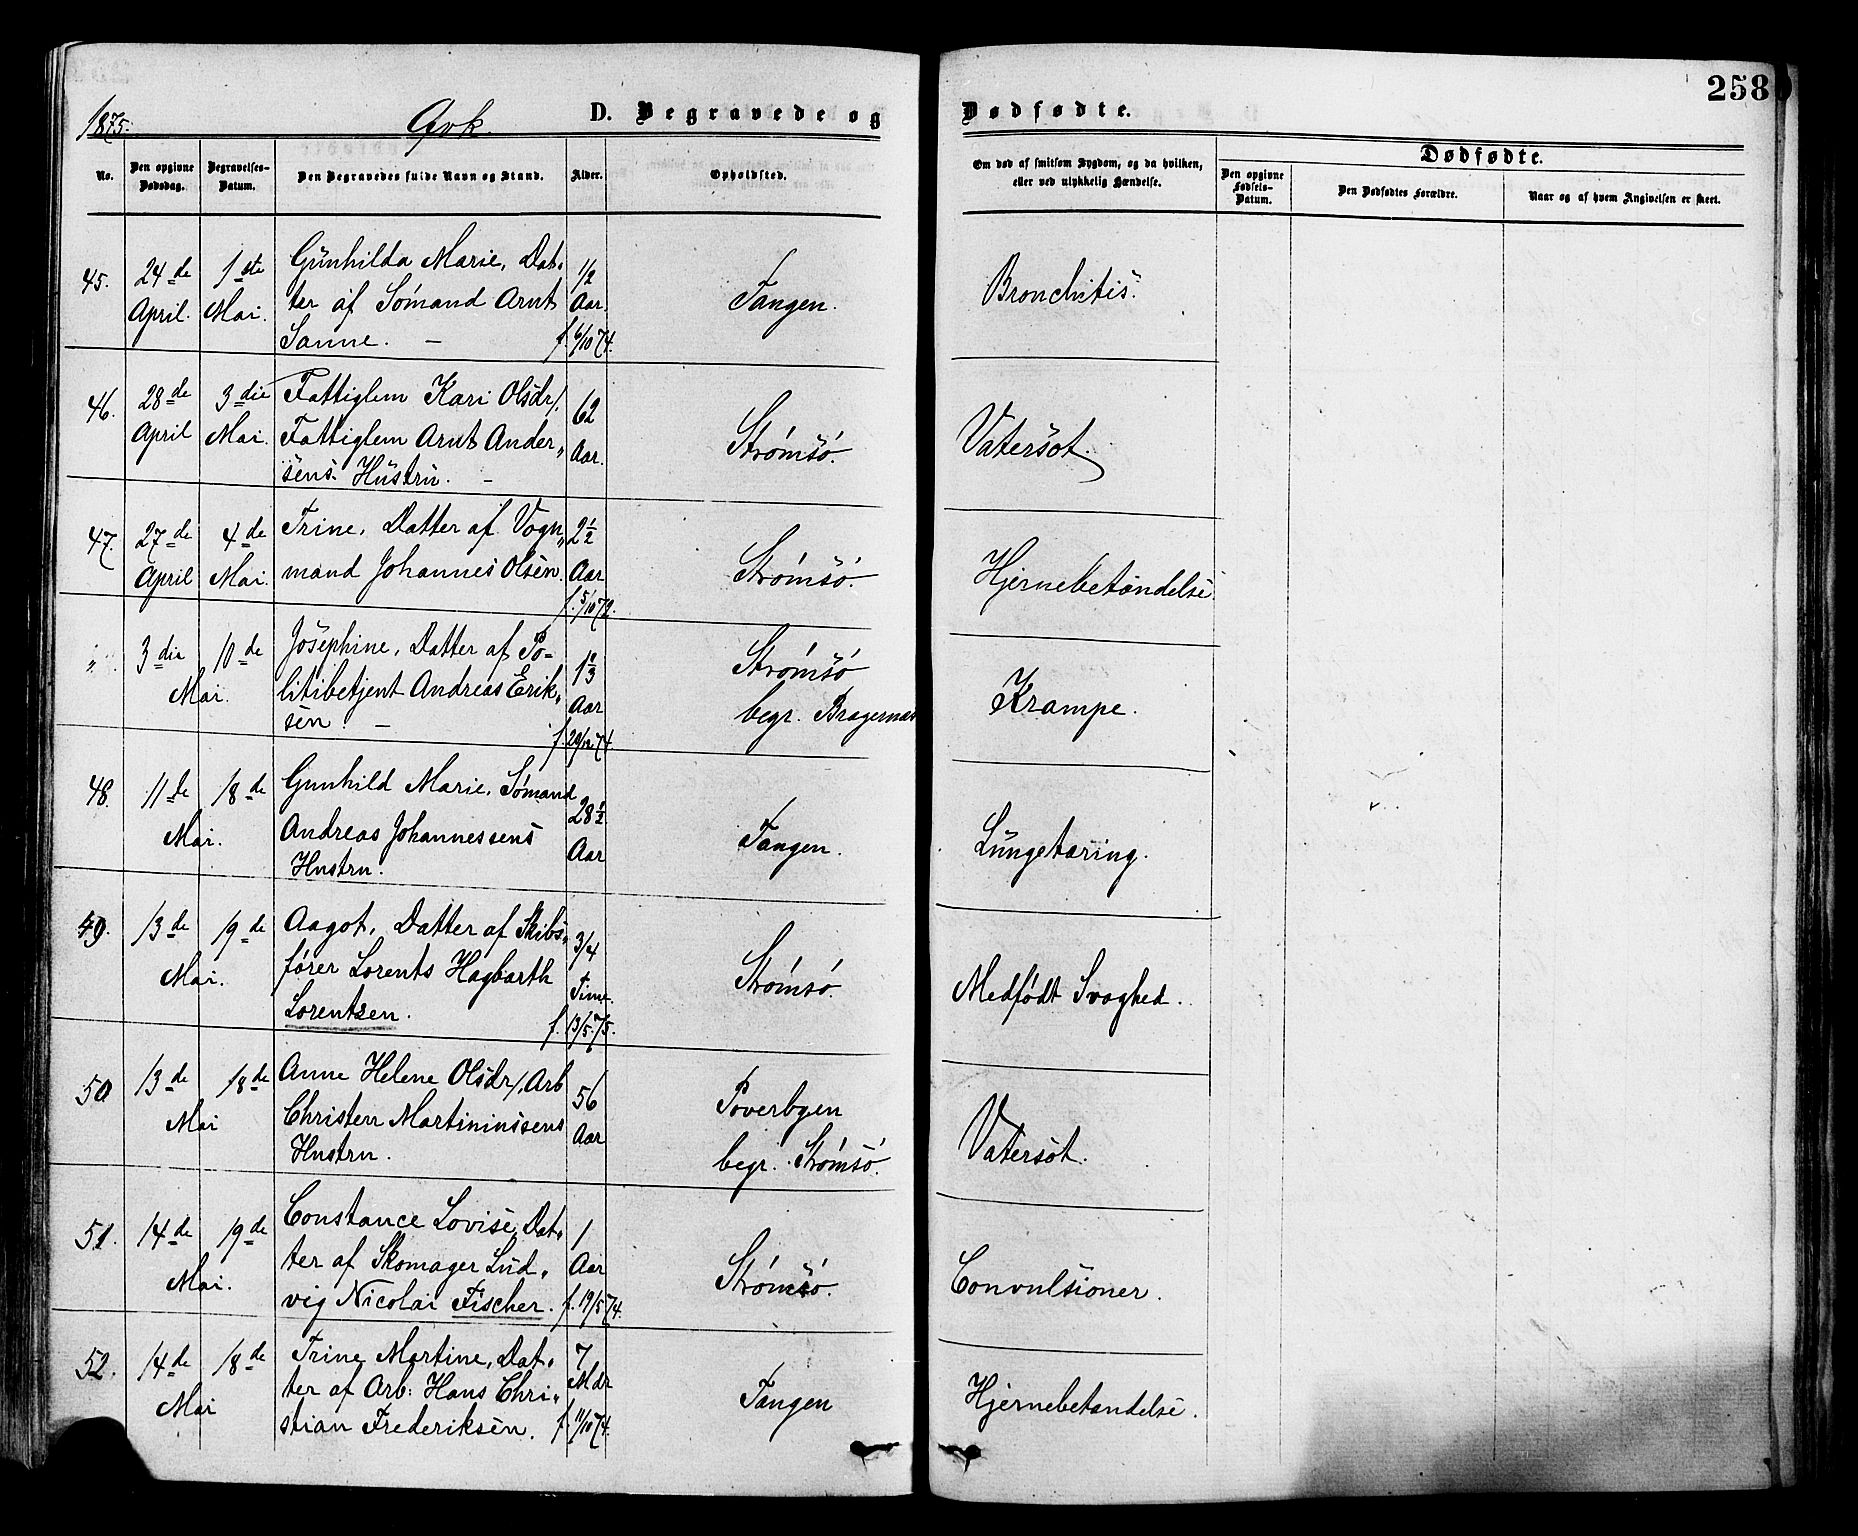 258
1875. Qvk. D. Begravede og Dødfødte.
No. Den opgivne Dødsdag. Begravelses-Datum. Den Begravedes fulde Navn og Stand. Alder. Opholdsted. Om død af smitsom Sygdom, og da hvilken, eller ved ulykkelig Hændelse. Dødfødte.
Den opgivne Fødsels-Datum. Den Dødfødtes Forældre. Naar og af hvem Angivelsen er skeet.
45. 24de April. 1ste Mai. Gunhilda Marie, Dat-
ter af Sømand Arnt
Sanne. —
1/2 Aar. f. 6/10 74.
Tangen.
Bronchitis.
46. 28de April 3die Mai. Fattiglem Kari Olsdr/.
Fattiglem Arnt Ander-
sens Hustru. —
62 Aar.
Strømsø.
Vatersot.
47. 27de April 4de Mai. Trine, Datter af Vogn-
mand Johannes Olsen.
2 1/2 Aar f. 5/10 72.
Strømsø.
Hjernebetændelse
" 3die 10de Mai. Josephine, Datter af Po-
litibetjent Andreas Erik-
sen. —
Aar
Strømsø
begr. Bragernæs
Krampe.
48. 11de 18de Mai. Gunhild Marie, Sømand
Andreas Johannessens
Hustru.
28 1/2 Aar
Tangen.
Lungetæring.
49. 13de 19de Mai. Aagot, Datter af Skibs-
fører Lorents Hagbarth
Lorentsen.
3/4 Time. f. 13/5 75.
Strømsø.
Medfødt Svaghed.
50 13de 18de Mai Anne Helene Olsdr/, Arb
Christen Martiniussens
Hustru.
56 Aar
Poverbyen
begr. Strømsø.
Vatersot.
51. 14de 19de Mai. Constance Lovise, Dat-
ter af Skomager Lud-
vig Nicolai Fischer.
1 Aar f. 19/5 74.
Strømsø.
Convulsioner.
52. 14de 18de Mai Trine Martine, Dat-
ter af Arb: Hans Chri-
stian Frederiksen.
7 Mdr f. 11/10 74.
Tangen
Hjernebetændelse.